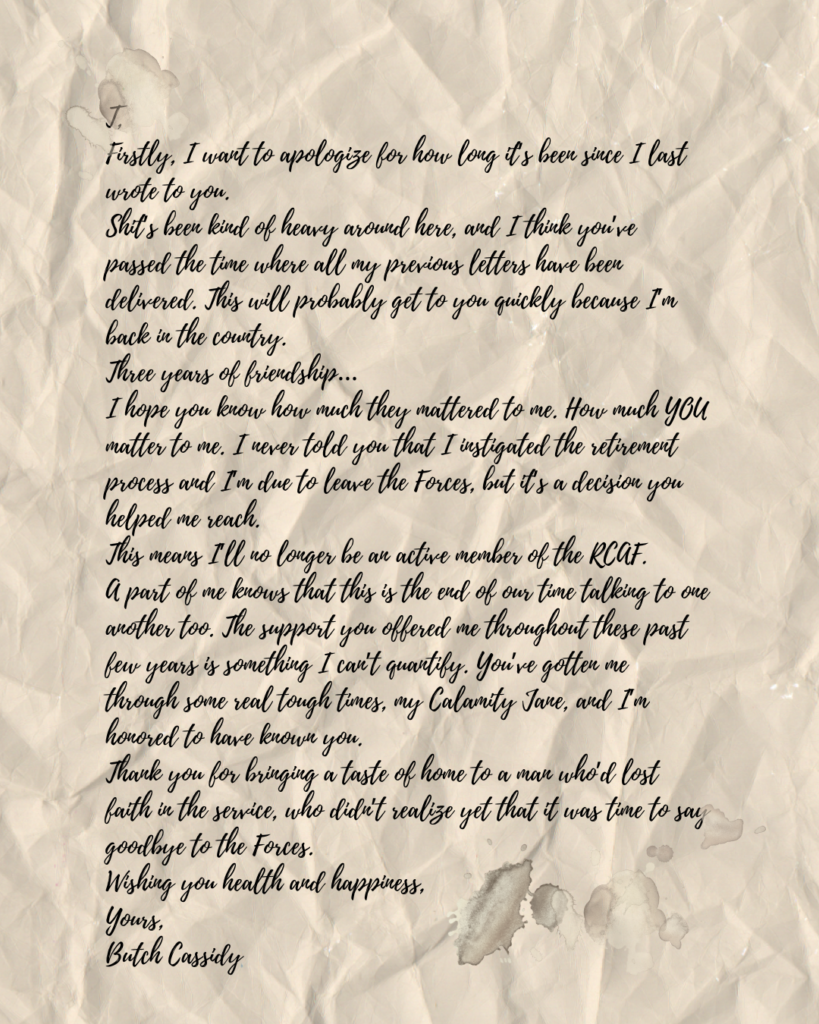 J,
Firstly, I want to apologize for how long it's been since I last
wrote to you.
Shit's been kind of heavy around here, and I think you've
passed the time where all my previous letters have been
delivered. This will probably get to you quickly because I'm
back in the country.
Three years of friendship...
I hope you know how much they mattered to me. How much YOU
matter to me. I never told you that I instigated the retirement
process and I'm due to leave the Forces, but it's a decision you
helped me reach.
This means I'll no longer be an active member of the RCAF.
A part of me knows that this is the end of our time talking to one
another too. The support you offered me throughout these past
few years is something I can't quantify. You've gotten me
through some real tough times, my Calamity Jane, and I'm
honored to have known you.
Thank you for bringing a taste of home to a man who'd lost
faith in the service, who didn't realize yet that it was time to say
goodbye to the Forces.
Wishing you health and happiness,
Yours,
Butch Cassidy